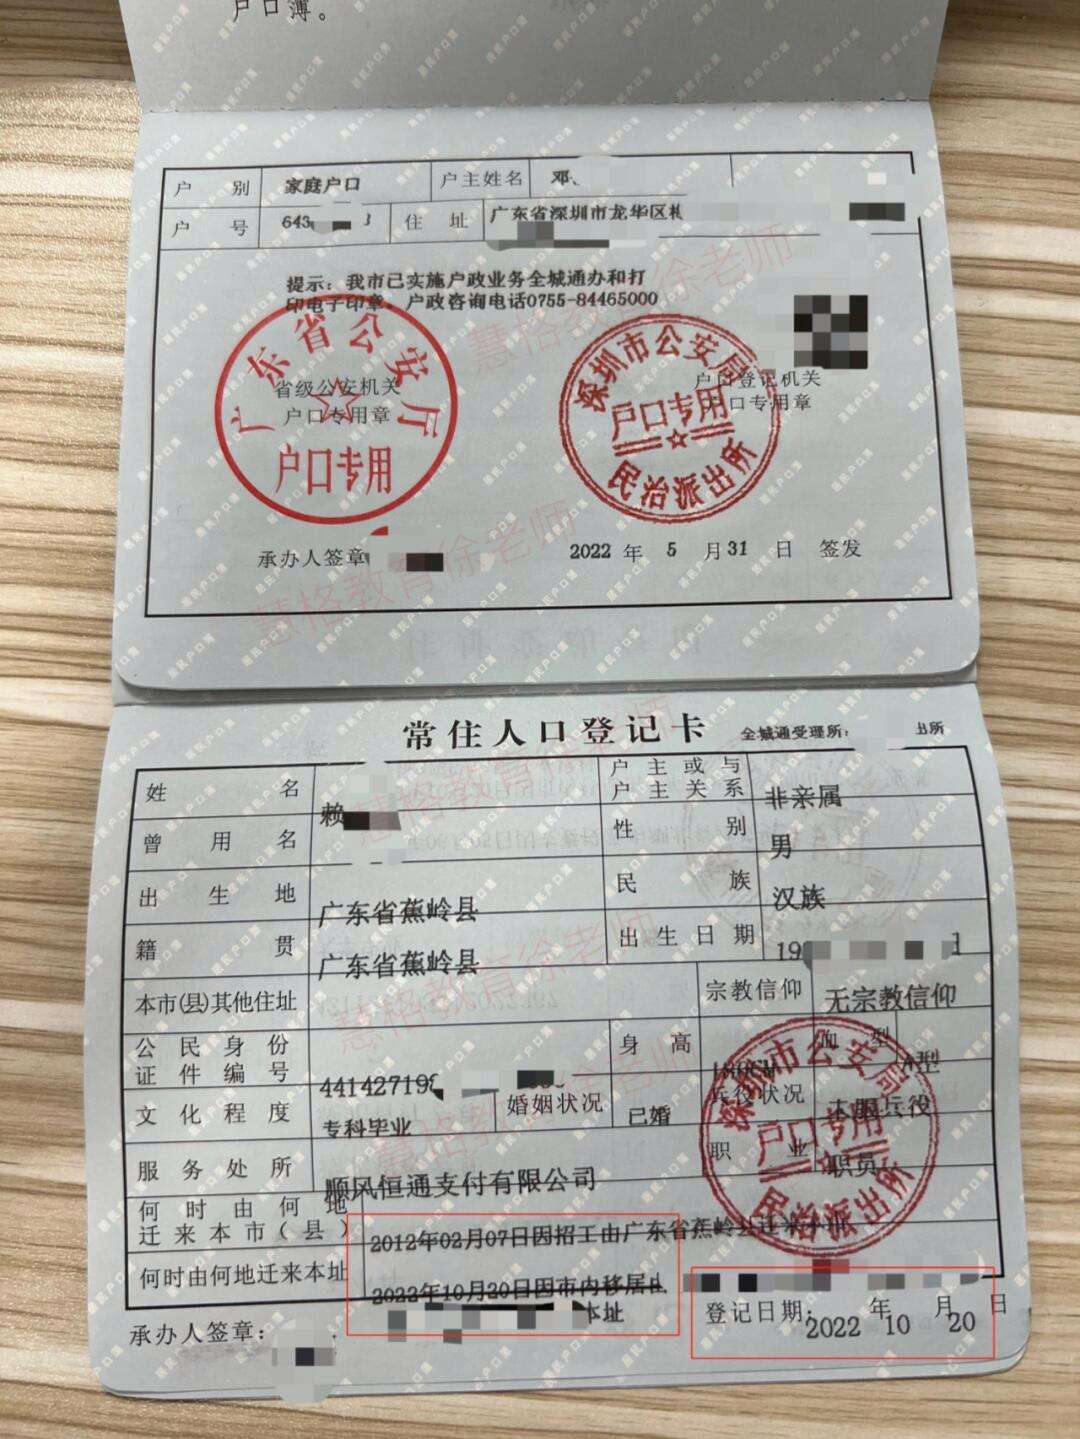 户口薄。
户 别 家庭户口 户主姓名 邓
户 号 643 住 址 广东省深圳市龙华区
提示：我市已实施户政业务全城通办和打
印电子印章，户政咨询电话0755-84465000
广东省公安厅
户口专用
省级公安机关
户口专用章
深圳市公安局
户口专用
民治派出所
户口登记机关
户口专用章
承办人签章
2022 年 5 月 31 日 签发
慧格教育徐老师
常住人口登记卡 全城通受理所： 出所
姓 名 赖 户主或与户主关系 非亲属
曾用名 性 别 男
出生地 广东省蕉岭县 民 族 汉族
籍 贯 广东省蕉岭县 出生日期 19
本市(县)其他住址 宗教信仰 无宗教信仰
公民身份证件编号 44142719 身 高 血 型 A型
文化程度 专科毕业 婚姻状况 已婚 兵役状况 兵役
服务处所 顺风恒通支付有限公司 职 业 职员
何时由何地迁来本市(县) 2012年02月07日因招工由广东省蕉岭县迁来
何时由何地迁来本址 2022年10月20日因市内移居
本址
深圳市公安局
户口专用
民治派出所
承办人签章： 登记日期：2022 年 10 月 20 日